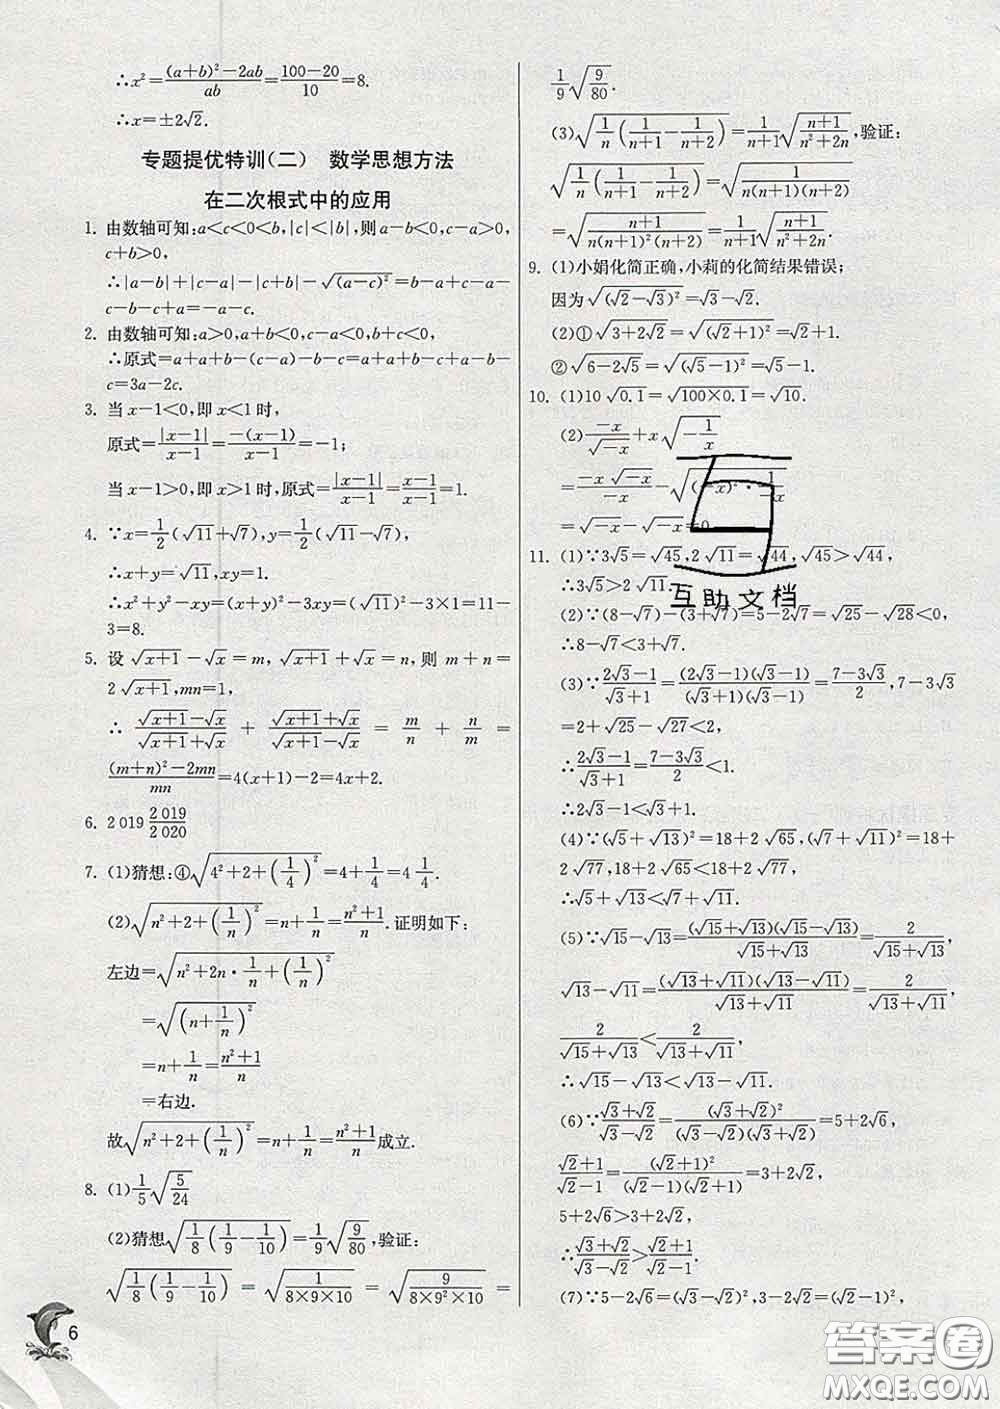 ∴x²=((a+b)²−2ab)/ab=(100−20)/10=8.
∴x=±2√2.
专题提优特训(二) 数学思想方法
在二次根式中的应用
1. 由数轴可知:a<c<0<b,|c|<|b|,则a−b<0,c−a>0,
c+b>0,
∴|a−b|+|c−a|−|c+b|−√((a−c)²)=b−a+c−a−
c−b−c+a=−a−c.
2. 由数轴可知:a>0,a+b<0,c−a<0,b+c<0,
∴原式=a+a+b−(c−a)−b−c=a+a+b−c+a−b−
c=3a−2c.
3. 当x−1<0,即x<1时,
原式=|x−1|/(x−1)=−(x−1)/(x−1)=−1;
当x−1>0,即x>1时,原式=|x−1|/(x−1)=(x−1)/(x−1)=1.
4. ∵x=1/2(√11+√7),y=1/2(√11−√7),
∴x+y=√11,xy=1.
∴x²+y²−xy=(x+y)²−3xy=(√11)²−3×1=11−
3=8.
5. 设√(x+1)−√x=m,√(x+1)+√x=n,则m+n=
2√(x+1),mn=1,
∴(√(x+1)−√x)/(√(x+1)+√x)+(√(x+1)+√x)/(√(x+1)−√x)=m/n+n/m=
((m+n)²−2mn)/mn=4(x+1)−2=4x+2.
6. 2 019 2 019/2 020
7. (1)猜想:④√(4²+2+(1/4)²)=4+1/4=4 1/4.
(2)√(n²+2+(1/n)²)=n+1/n=(n²+1)/n.证明如下:
左边=√(n²+2n·1/n+(1/n)²)
=√((n+1/n)²)
=n+1/n=(n²+1)/n
=右边.
故√(n²+2+(1/n)²)=n+1/n=(n²+1)/n成立.
8. (1)1/5√(5/24)
(2)猜想√(1/8(1/9−1/10))=1/9√(9/80),验证:
√(1/8(1/9−1/10))=√(1/(8×9×10))=√(9/(8×9²×10))=
1/9√(9/80).
(3)√(1/n(1/(n+1)−1/(n+2)))=1/(n+1)√((n+1)/(n²+2n)),验证:
√(1/n(1/(n+1)−1/(n+2)))=√(1/(n(n+1)(n+2)))
=√((n+1)/(n(n+1)²(n+2)))=1/(n+1)√((n+1)/(n²+2n)).
9. (1)小娟化简正确,小莉的化简结果错误;
因为√((√2−√3)²)=√3−√2.
(2)①√(3+2√2)=√((√2+1)²)=√2+1.
②√(6−2√5)=√((√5−1)²)=√5−1.
10. (1)10√0.1=√(100×0.1)=√10.
(2)−x/√(−x)+x√(−1/x)
=−x√(−x)/−x−√((−x)²·1/−x)
=√(−x)−√(−x)=0.
11. (1)∵3√5=√45,2√11=√44,√45>√44,
∴3√5>2√11.
(2)∵(8−√7)−(3+√7)=5−2√7=√25−√28<0,
∴8−√7<3+√7.
(3)∵(2√3−1)/(√3+1)=(2√3−1)(√3−1)/(√3+1)(√3−1)=(7−3√3)/2,7−3√3
=2+√25−√27<2,
∴(2√3−1)/(√3+1)=(7−3√3)/2<1.
∴2√3−1<√3+1.
(4)∵(√5+√13)²=18+2√65,(√7+√11)²=18+
2√77,18+2√65<18+2√77,
∴√5+√13<√7+√11.
(5)∵√15−√13=(√15+√13)(√15−√13)/(√15+√13)=2/(√15+√13),
√13−√11=(√13+√11)(√13−√11)/(√13+√11)=2/(√13+√11),
2/(√15+√13)<2/(√13+√11)
∴√15−√13<√13−√11.
(6)∵(√3+√2)/(√3−√2)=(√3+√2)²/(√3−√2)(√3+√2)=5+2√6,
(√2+1)/(√2−1)=(√2+1)²/(√2−1)(√2+1)=3+2√2,
5+2√6>3+2√2,
∴(√3+√2)/(√3−√2)>(√2+1)/(√2−1).
(7)∵5−2√6=(√3−√2)²,3−2√2=(√2−1)²,
互助文档
6
答案圈
MXQE.COM